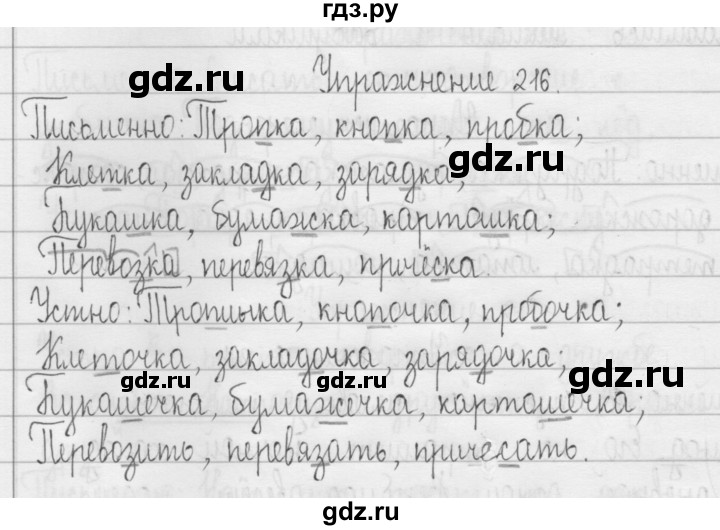 гдз.ру
gdz.ru gdz.ru
Упражнение 216.
Письменно: Тропка, кнопка, пробка;
gdz.ru
Клетка, закладка, зарядка;
Букашка, бумажка, картошка;
Перевозка, перевязка, причёска.
Устно: Тропинка, кнопочка, пробочка;
Клеточка, закладочка, зарядочка,
gdz.ru gdz.ru gdz.ru
Букашечка, бумажечка, картошечка;
Перевозить, перевязать, причесать.